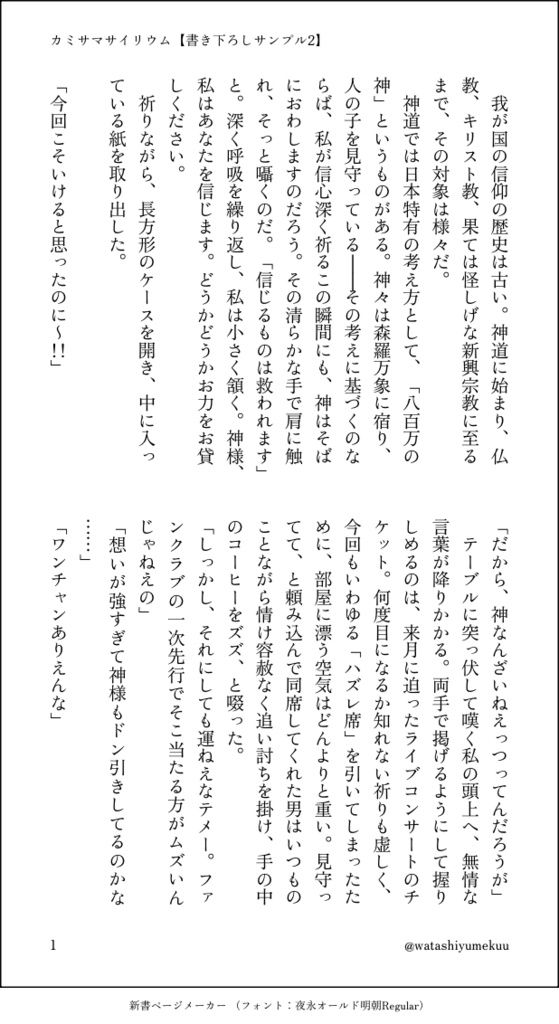 カミサマサイリウム【書き下ろしサンプル2】
　我が国の信仰の歴史は古い。神道に始まり、仏
教、キリスト教、果ては怪しげな新興宗教に至る
まで、その対象は様々だ。
　神道では日本特有の考え方として、「八百万の
神」というものがある。神々は森羅万象に宿り、
人の子を見守っている──その考えに基づくのな
らば、私が信心深く祈るこの瞬間にも、神はそば
におわしますのだろう。その清らかな手で肩に触
れ、そっと囁くのだ。「信じるものは救われます」
と。深く呼吸を繰り返し、私は小さく頷く。神様、
私はあなたを信じます。どうかどうかお力をお貸
しください。
　祈りながら、長方形のケースを開き、中に入っ
ている紙を取り出した。
「今回こそいけると思ったのに〜!!」
「だから、神なんざいねえっつってんだろうが」
　テーブルに突っ伏して嘆く私の頭上へ、無情な
言葉が降りかかる。両手で掲げるようにして握り
しめるのは、来月に迫ったライブコンサートのチ
ケット。何度目になるか知れない祈りも虚しく、
今回もいわゆる「ハズレ席」を引いてしまったた
めに、部屋に漂う空気はどんよりと重い。見守っ
てて、と頼み込んで同席してくれた男はいつもの
ことながら情け容赦なく追い討ちを掛け、手の中
のコーヒーをズズ、と啜った。
「しっかし、それにしても運ねえなテメー。ファ
ンクラブの一次先行でそこ当たる方がムズいん
じゃねえの」
「想いが強すぎて神様もドン引きしてるのかな
……」
「ワンチャンありえんな」
1
@watashiyumekuu
新書ページメーカー （フォント：夜永オールド明朝Regular）